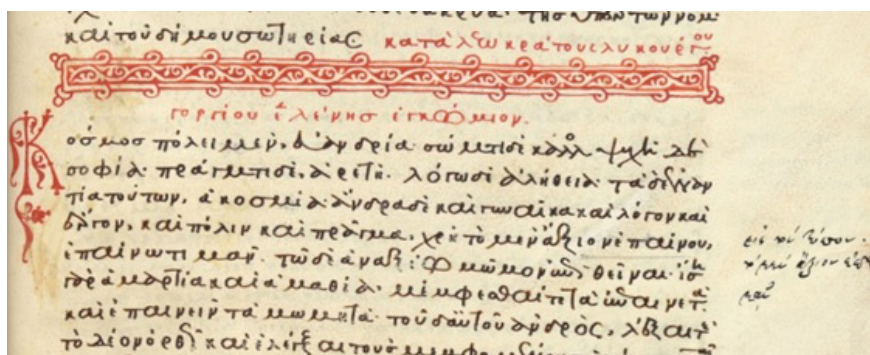 τῆς ὑπὲρ τῶν νόμ
καὶ τοῦ δήμου σωτηρίας κατὰ λεωκράτους λυκούργου
γοργίου ἑλένης ἐγκώμιον.
Κόσμος πόλει μὲν, εὐανδρία· σώματι δὲ κάλλος ψυχῆ δὲ
σοφία· πράγματι δὲ, ἀρετή. λόγω δὲ ἀλήθεια· τὰ δὲ ἐναν
τία τούτων, ἀκοσμία· ἄνδρα δὲ καὶ γυναῖκα καὶ λόγον καὶ
ἔργον, καὶ πόλιν καὶ πρᾶγμα, χρὴ τὸ μὲν ἄξιον ἐπαίνου,
ἐπαίνω τιμᾶν. τῶ δὲ ἀναξίω μῶμον ἐπιθεῖναι· ἴση
γὰρ ἁμαρτία καὶ ἀμαθία· μέμφεσθαί τε τὰ ἐπαινετὰ
καὶ ἐπαινεῖν τὰ μωμητά· τοῦ δ' αὐτοῦ ἀνδρὸς, λέξαι τε
τὸ δέον ὀρθῶς καὶ ἐλέγξαι τοὺς